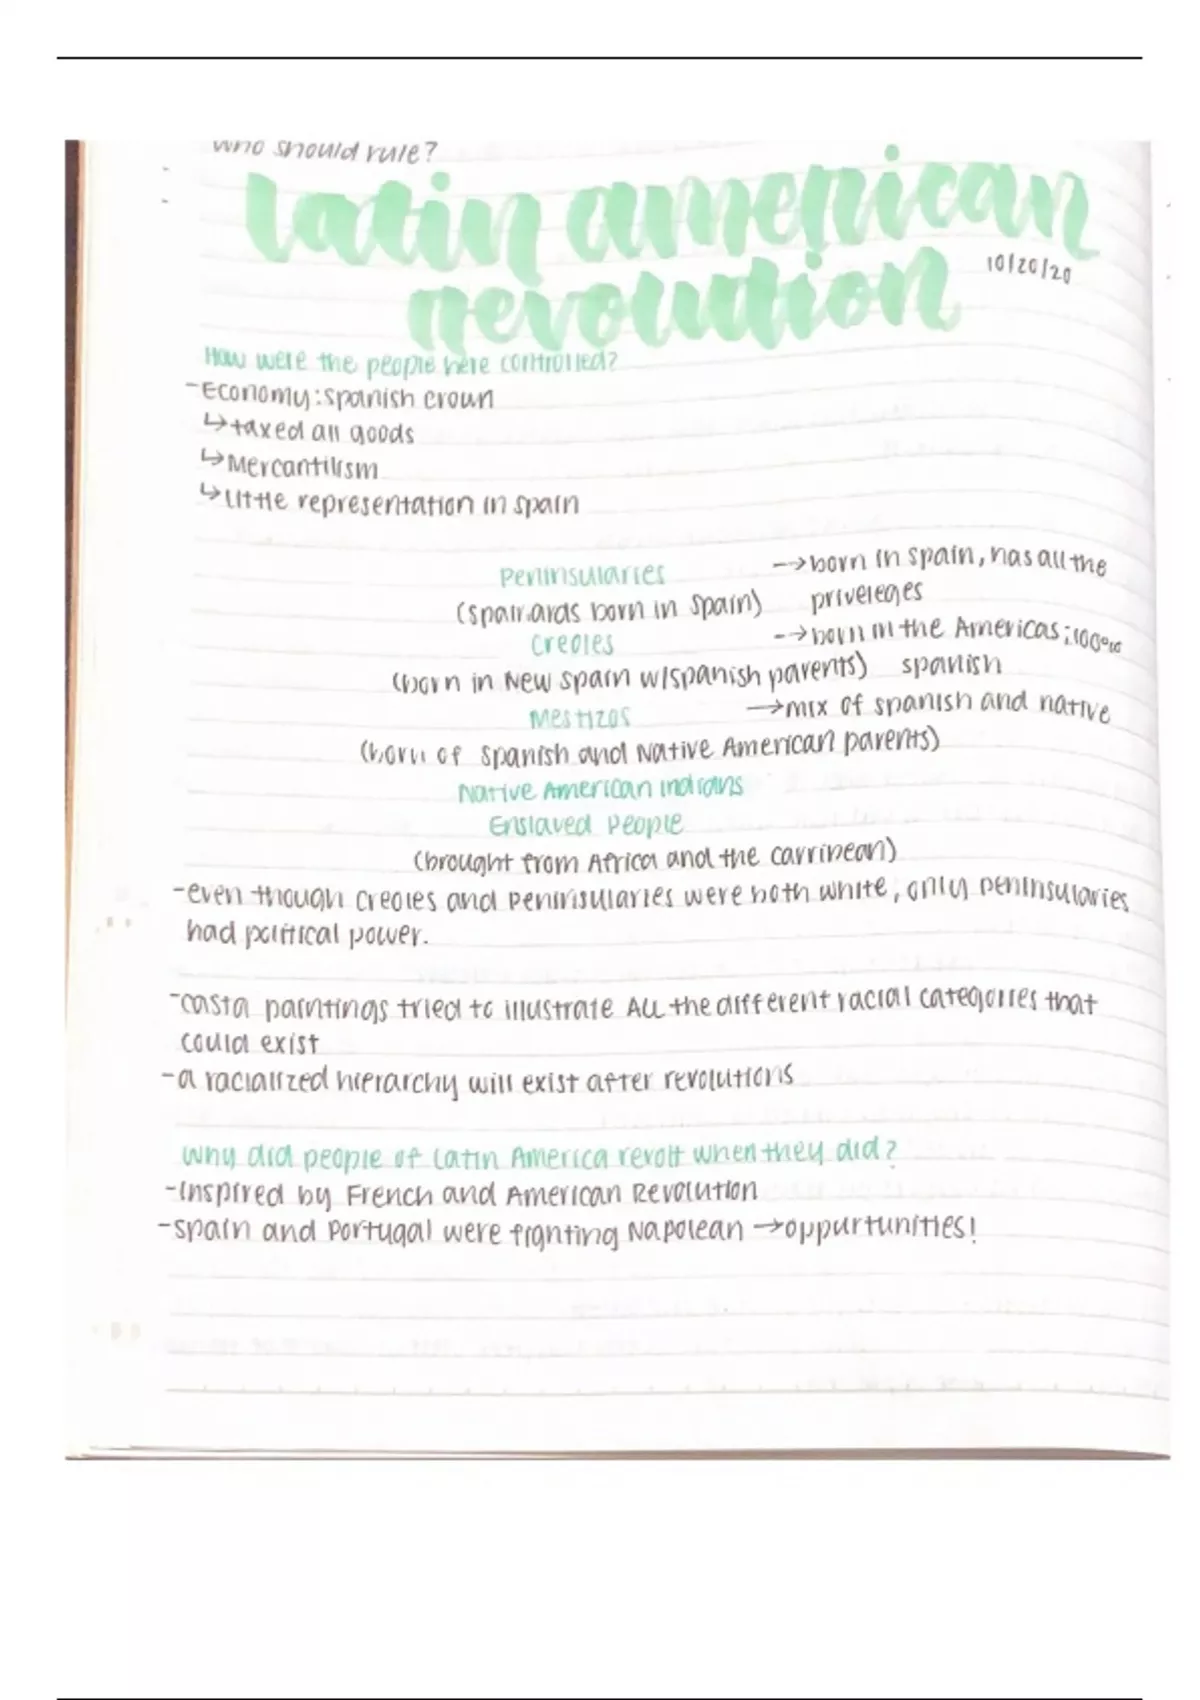 who should rule?
latin american
revolution
10/20/20
How were the people here controlled?
-Economy: spanish crown
↳taxed all goods
↳Mercantilism
↳little representation in spain
Peninsularies
→born in spain, has all the
(spainards born in spain)
priveleges
creoles
→born in the Americas; 100%
(born in New spain w/spanish parents)
spanish
Mestizos
→mix of spanish and native
(born of spanish and Native American parents)
Native American indians
Enslaved People
(brought from Africa and the carribean)
-even though creoles and peninsularies were both white, only peninsularies
had political power.
-casta paintings tried to illustrate ALL the different racial categories that
could exist
-a racialized hierarchy will exist after revolutions
Why did people of Latin America revolt when they did?
-inspired by French and American Revolution
-spain and Portugal were fighting Napolean →oppurtunities!